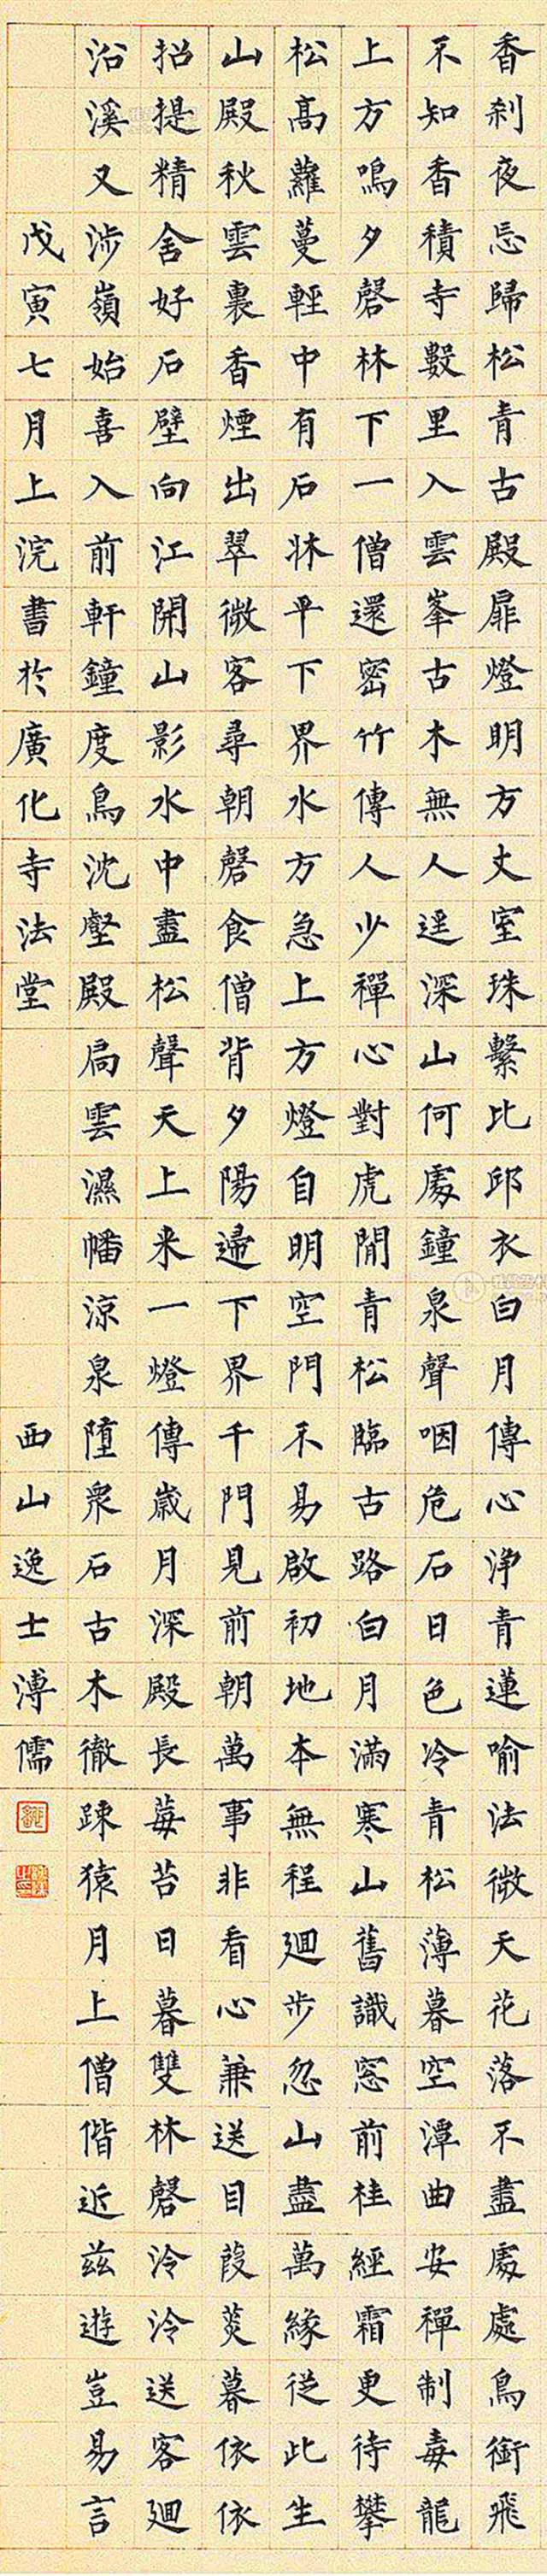 香刹夜忘歸松青古殿扉燈明方丈室珠繫比邱衣白月傳心浄青蓮喻法微天花落不盡處處鳥銜飛
不知香積寺數里入雲峯古木無人逕深山何處鐘泉聲咽危石日色冷青松薄暮空潭曲安禪制毒龍
上方鳴夕磬林下一僧還密竹傳人少禪心對虎閒青松臨古路白月滿寒山舊識窓前桂經霜更待攀
松高蘿蔓輕中有石牀平下界水方急上方燈自明空門不易啟初地本無程迴步忽山盡萬緣從此生
山殿秋雲裏香煙出翠微客尋朝磬食僧背夕陽歸下界千門見前朝萬事非看心兼送目葭菼暮依依
招提精舍好石壁向江開山影水中盡松聲天上来一燈傳歲月深殿長莓苔日暮雙林磬泠泠送客迴
沿溪又涉嶺始喜入前軒鐘度鳥沈壑殿扃雲濕幡涼泉墮衆石古木徹踈猿月上僧偕近茲遊豈易言
戊寅七月上浣書於廣化寺法堂
西山逸士溥儒